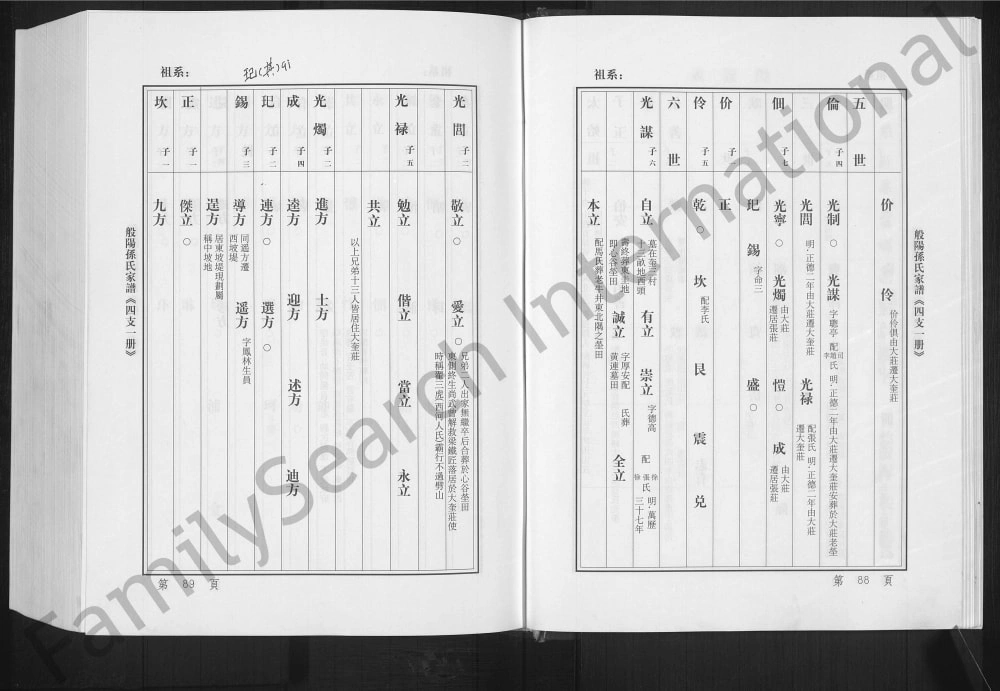 祖系：
五世
价 伶 价伶俱由大莊遷大奎莊
倫 子四
光制 ○ 光謀 字聰亭 配 司趙李 氏 明·正德二年由大莊遷大奎莊安葬於大莊老塋
光閭 明·正德二年由大莊遷大奎莊 光禄 配張氏 明·正德二年由大莊遷大奎莊
佃 子七
光寧 ○ 光燭 由大莊遷居張莊 愷 ○ 成 由大莊遷居張莊
玘 錫 字命三 盛 ○
价 子一
正
伶 子五
乾 ○ 坎 配李氏 艮 震 兑
六世
光謀 子六
自立 墓在奎三村十三畝地西頭 有立 崇立 字德高 配 徐張徐 氏 明·萬歷三十七年
壽終葬東土地即心谷塋田 誠立 字厚安配 氏葬黄連墓田 全立
本立 配馬氏葬老牛井東北隅之塋田
般陽孫氏家譜《四支一册》
第 88 頁
祖系：
玘(其)qi
光閭 子二
敬立 ○ 愛立 ○ 兄弟二人出家無繼卒后合葬於心谷塋田
東側終生尚武曾解救梁鐵匠落居於大奎莊使
時稱霍三虎(西河人氏)霸行不過劈山
光禄 子五
勉立 偕立 當立 永立
共立
以上兄弟十三人皆居住大奎莊
光燭 子二
進方 士方
成 子四
逵方 迎方 述方 迪方
玘 子二
連方 ○ 選方 ○
錫 子三
導方 同遥方遷西坡堤 遥方 字鳳林生員
逞方 居東坡堤現劃屬稱中坡地
正 子一
傑立 ○
坎 子一
九方
般陽孫氏家譜《四支一册》
第 89 頁
FamilySearch International